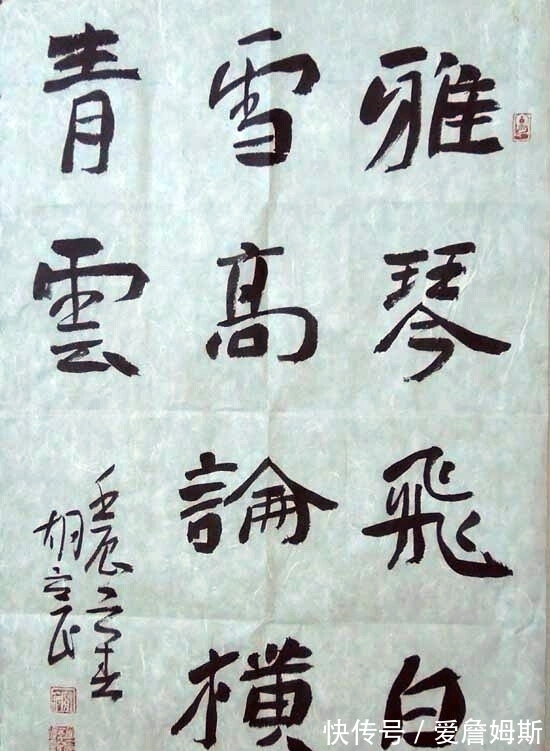 雅琴飛白
雪高論横
青雲
壬辰春
胡民
快传号/爱詹姆斯